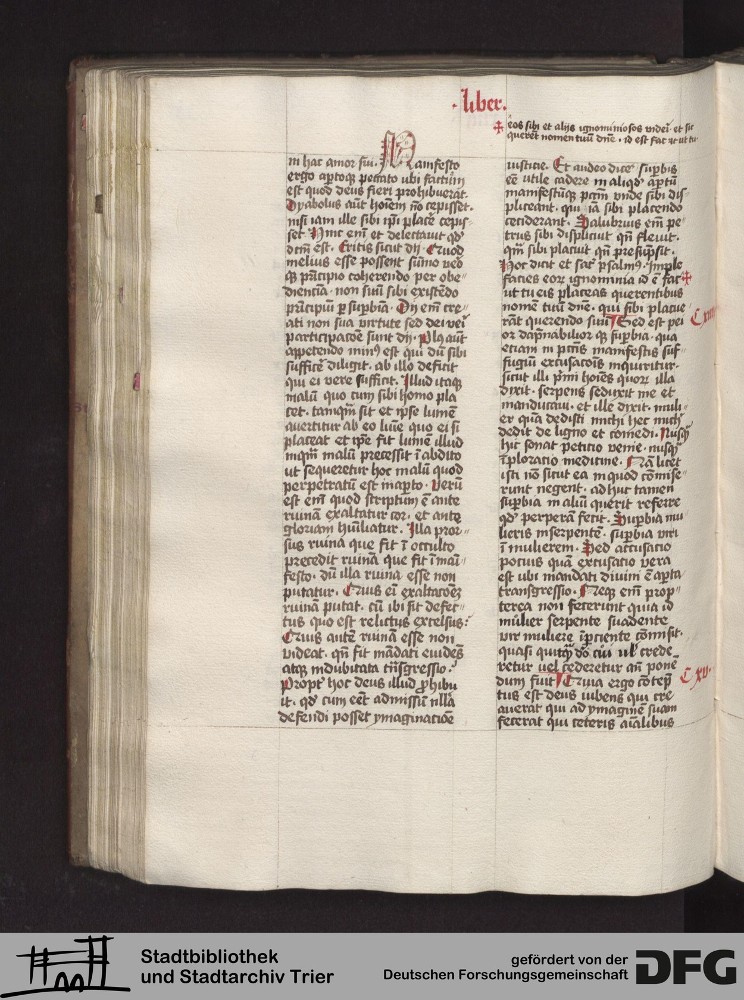 · liber ·
eos sibi et alijs ignominiosos videri · et sic
querēt nomen tuū dn̄e · id est fac ut ut tu
in hac amor sui · In manifesto
ergo aꝑtoqꝫ peccato ubi factum
est quod deus fieri prohibuerat.
Dyabolus aūt hoīem nō cepisset.
nisi iam ille sibi ip̄i placē cepis-
set. Hinc em̄ et delectauit qd̓
dc̄m est. Eritis sicut dij. Quod
melius esse possent sūmo vero
qꝫ prīcipio coherendo per obe-
dienciā. non suū sibi existēdo
prīcipiū ꝑ suꝑbiā. Dij em̄ cre-
ati non sua virtute sed dei veri
participacōe sunt dij. Plꝰ aūt
appetendo minꝰ est qui dū sibi
sufficē diligit. ab illo deficit
qui ei vere sufficit. Illud itaqꝫ
malū quo cum sibi homo pla
cet. tamqm̄ sit et ip̄se lumē
auertitur ab eo lumē quo ei si
placeat et ip̄e fit lumē illud
inqm̄ malū precessit ī abdito
ut sequeretur hoc malū quod
perpetratū est in apto. Verū
est em̄ quod scriptum ē ante
ruinā exaltatur cor. et ante
gloriam humiliatur. Illa pror-
sus ruina que fit ī occulto
precedit ruinā que fit ī mani-
festo. dū illa ruina esse non
putatur. Quis em̄ exaltacōeꝫ
ruinā putat. cū ibi sit defec-
tus quo est relictus excelsus.
Quis autē ruinā esse non
videat. qn̄ fit mādati euidēs
atqꝫ indubitata trāsgressio.
Propt̓ hoc deus illud ꝓhibu
it. qd̓ cum eēt admissū nulla
defendi posset ymaginacōe
iusticie. Et audeo dicē suꝑbis
eē utile cadere in aliqd̓ aꝑtū
manifestūqꝫ pcm̄ vnde sibi dis-
pliceant. qui iā sibi placendo
ceciderant. Salubrius em̄ pe-
trus sibi displicuit qn̄ fleuit.
qm̄ sibi placuit qn̄ presūpsit.
Hoc dicit et sac̓ psalmꝰ. Imple
facies eoꝝ ignominia id ē fac
ut tu eis placeas querentibus
nomē tuū dn̄e. qui sibi placue
rāt querendo suū Sed est pei C xiiij
or dāpnabiliorqꝫ suꝑbia. qua
etiam in pctīs manifestis suf-
fugiū excusacōis inquiritur.
sicut illi pīmi hoīes quoꝝ illa
dixit. serpens seduxit me et
manducaui. et ille dixit. muli-
er quā dedisti michi hec mich̓
dedit de ligno et comedi. Nusqꝫ
hic sonat peticio venie. nusqꝫ
īploracio medicine. Nā licet
isti nō sicut cayn quod cōmise-
runt negent. adhuc tamen
suꝑbia in aliū querit referre
qd̓ perperā fecit. Suꝑbia mu-
lieris in serpentē. suꝑbia viri
ī mulierem. Sed accusacio
pocius quā excusacio vera
est ubi mandati diuini ē aꝑta
transgressio. Neqꝫ em̄ prop-
terea non fecerunt quia id
mulier serpente suadente
vir muliere īpciente cōmisit.
quasi quicqꝫ deo cui nl̓ crede
retur uel cederetur an̄ ponē
dum fuit Quia ergo cōtēp C xv.
tus est deus iubens qui cre
auerat qui ad ymaginē suam
fecerat qui ceteris aīalibus
Stadtbibliothek
und Stadtarchiv Trier
gefördert von der
Deutschen Forschungsgemeinschaft
DFG